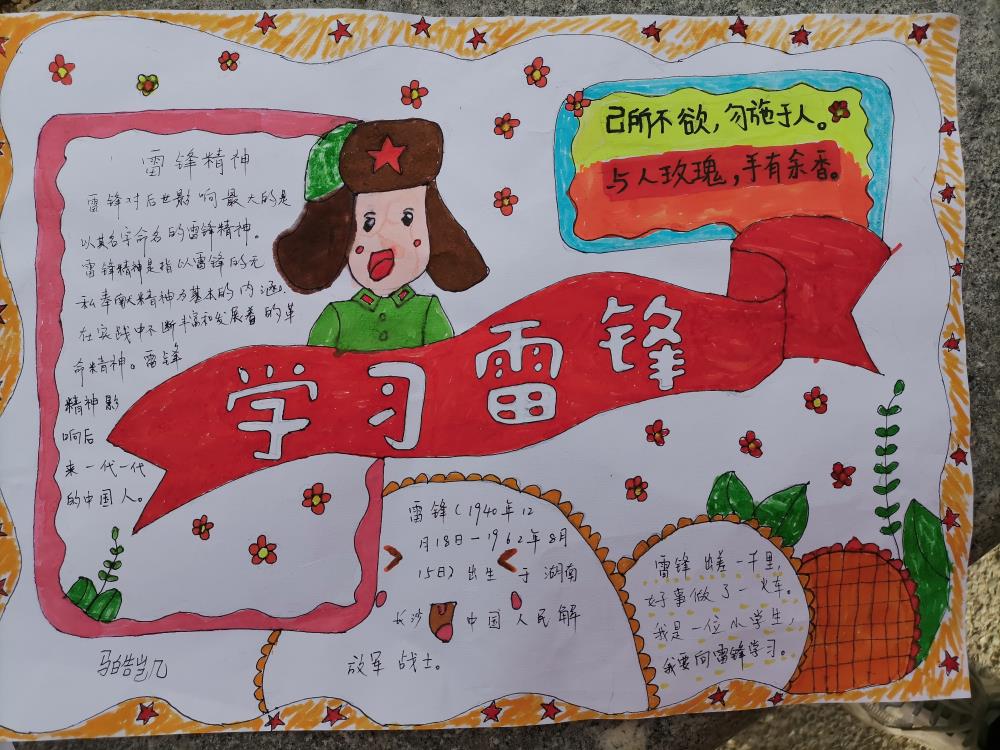 雷锋精神
雷锋对后世影响最大的是
以其名字命名的雷锋精神。
雷锋精神是指以雷锋的无
私奉献精神为基本的内涵。
在实践中不断丰富和发展着的革
命精神。雷锋
精神影
响后
来一代一代
的中国人。
己所不欲,勿施于人。
与人玫瑰,手有余香。
学习雷锋
雷锋(1940年12
月18日-1962年8月
15日)出生于湖南
长沙 中国人民解
放军战士。
雷锋出差一千里,
好事做了一火车。
我是一位小学生,
我要向雷锋学习。